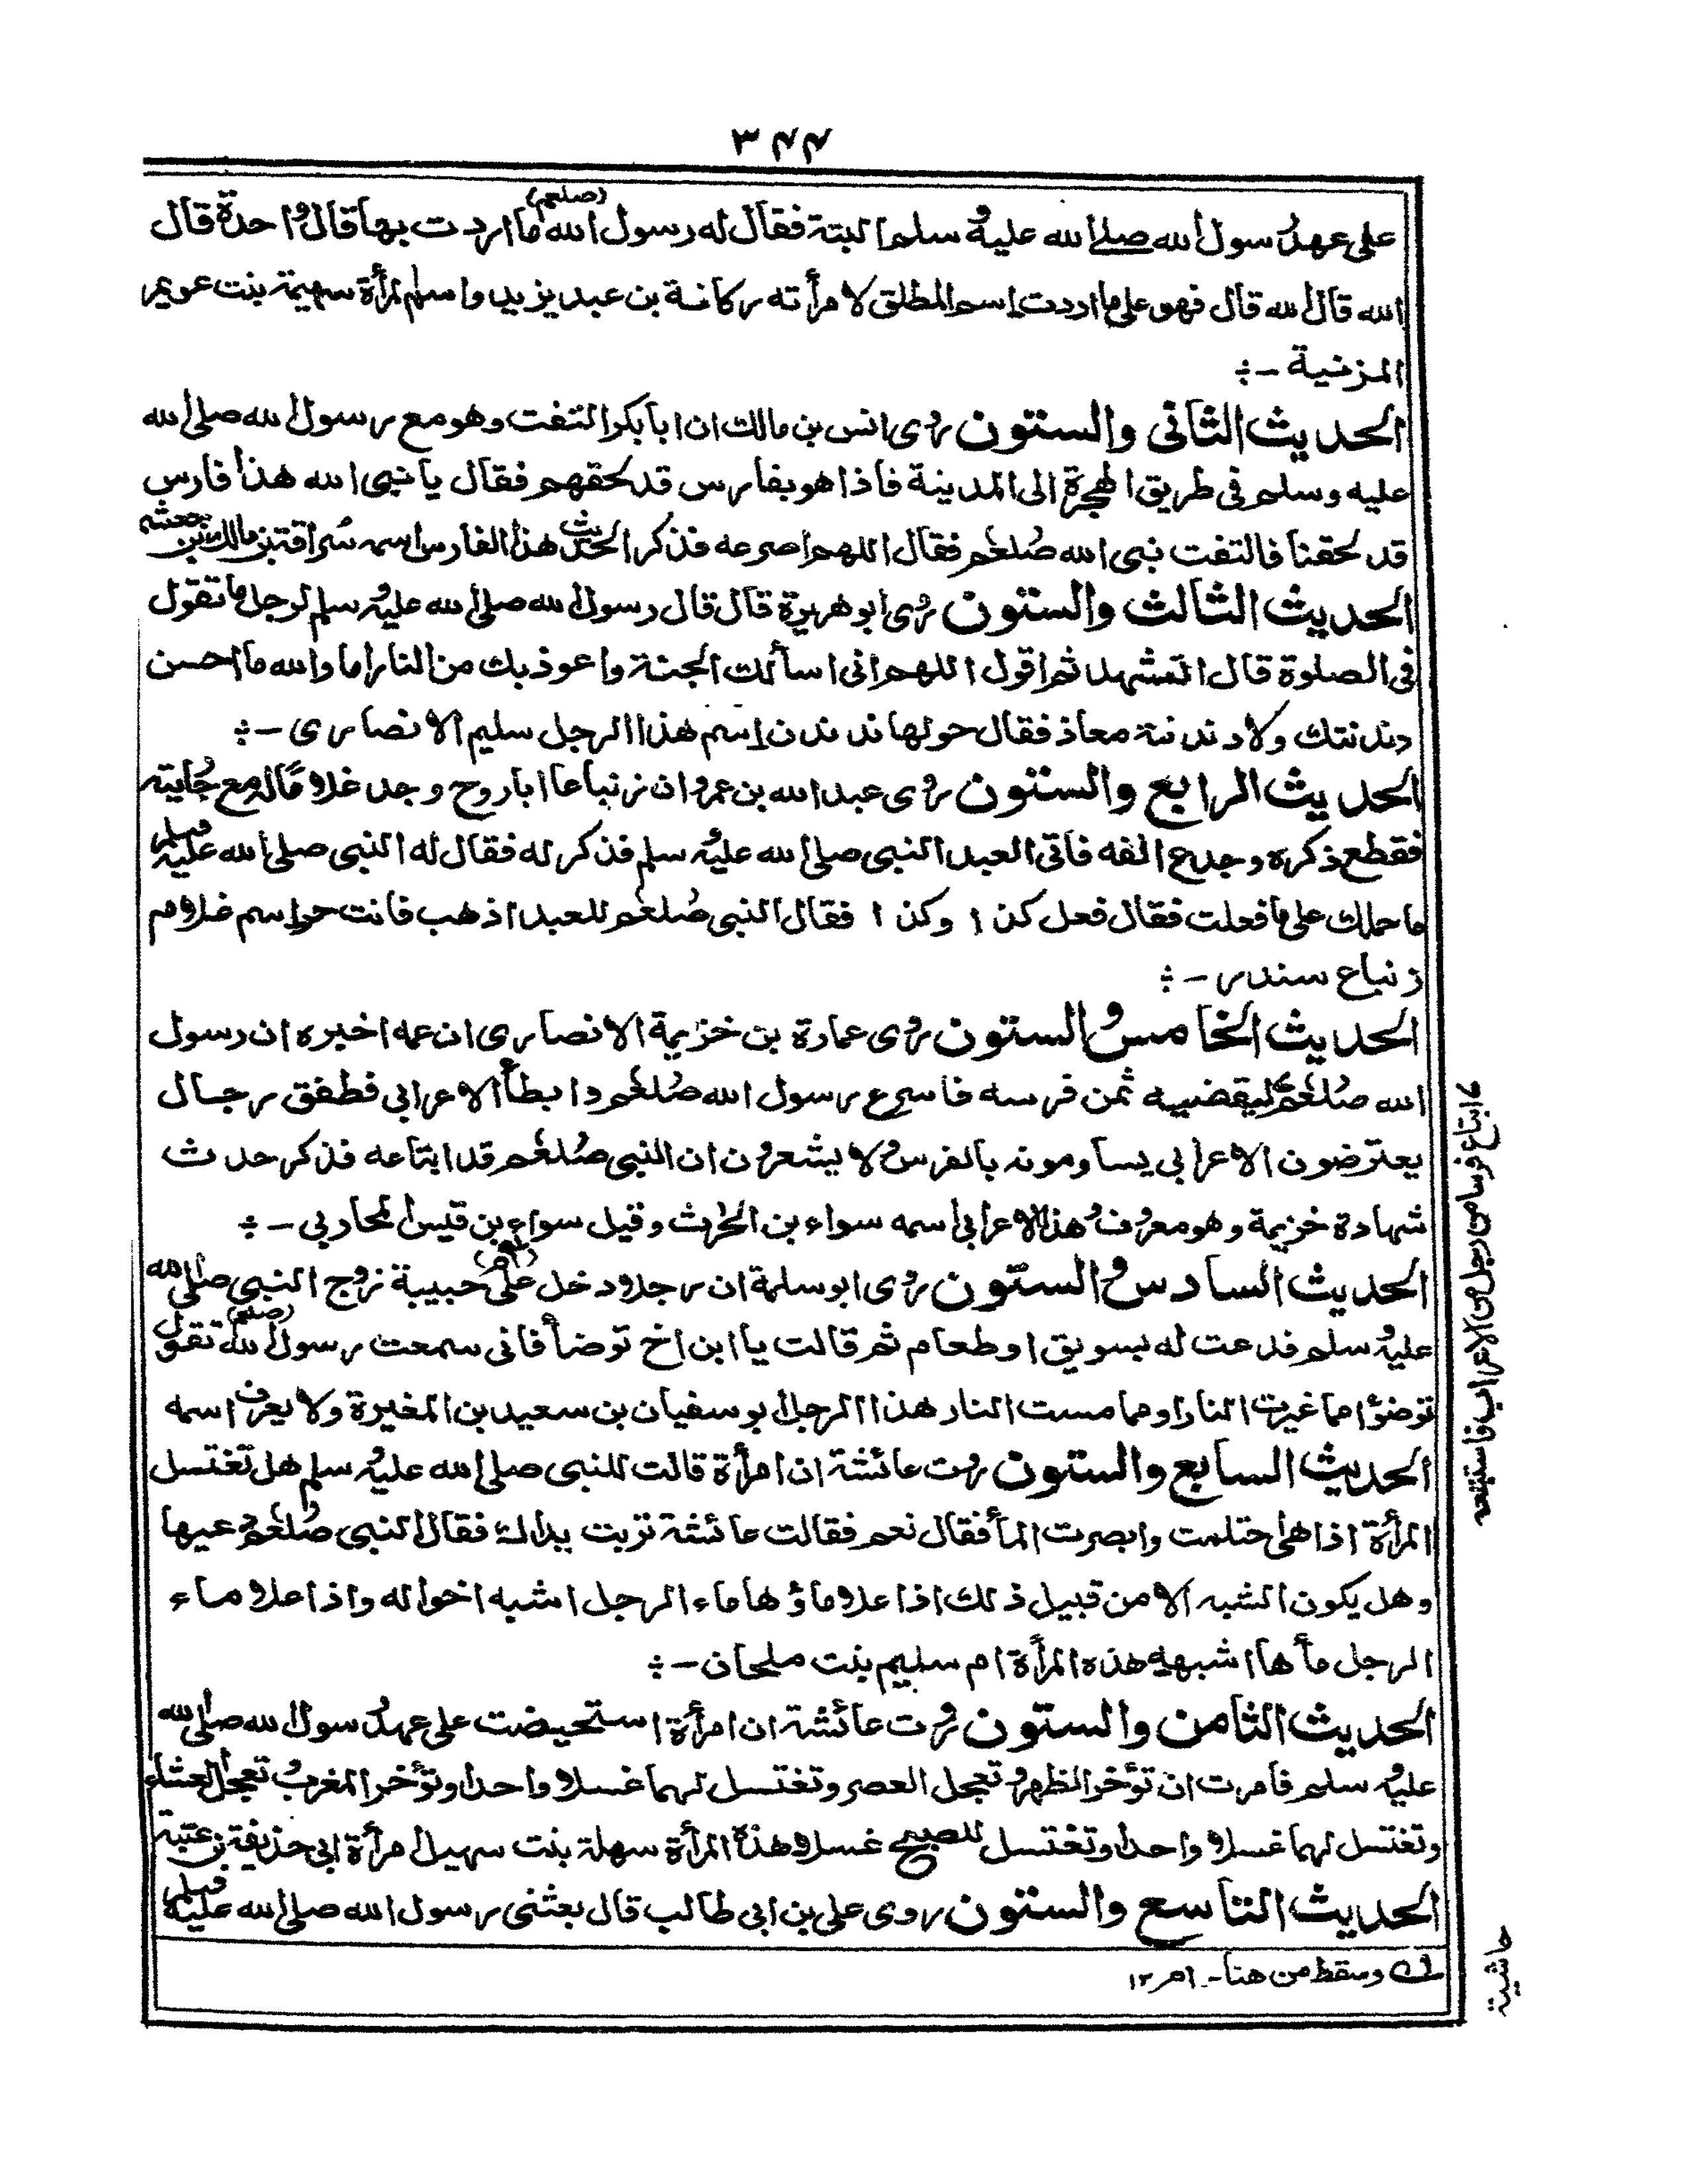 ٣٤٤
على عهد رسول الله صلى الله عليه وسلم البتة فقال له رسول الله (صلعم) ما اردت بها قال واحدة قال
الله قال الله قال فهو على ما اردت اسم المطلق لامرأته ركانة بن عبد يزيد واسم امرأة سهيمة بنت عويمر
المزنية -:
الحديث الثانى والستون روى انس بن مالك ان ابا بكر التفت وهو مع رسول الله صلى الله
عليه وسلم فى طريق الهجرة الى المدينة فاذا هو بفارس قد لحقهم فقال يا نبى الله هذا فارس
قد لحقنا فالتفت نبى الله صلعم فقال اللهم اصرعه فذكر الحديث هذا الفارس اسمه سُراقة بن مالك بن جعشم
الحديث الثالث والستون روى ابو هريرة قال قال رسول الله صلى الله عليه وسلم لرجل ما تقول
فى الصلوة قال اتشهد ثم اقول اللهم انى اسألك الجنة واعوذ بك من النار اما والله ما احسن
دندنتك ولا دندنة معاذ فقال حولها ندندن اسم هذا الرجل سليم الانصارى -:
الحديث الرابع والستون روى عبد الله بن عمرو ان زنباعا ابا روح وجد غلامًا له مع جاريته
فقطع ذكره وجدع انفه فاتى العبد النبى صلى الله عليه وسلم فذكر له فقال له النبى صلى الله عليه وسلم
ما حملك على ما فعلت فقال فعل كذا وكذا فقال النبى صلعم للعبد اذهب فانت حر اسم غلام
زنباع سندر -:
الحديث الخامس والستون روى عمارة بن خزيمة الانصارى ان عمه اخبره ان رسول
الله صلعم ليقضيه ثمن فرسه فاسرع رسول الله صلعم وابطأ الاعرابي فطفق رجال
يعترضون الاعرابي يساومونه بالفرس ولا يشعرون ان النبى صلعم قد ابتاعه فذكر حدث
شهادة خزيمة وهو معروف وهذا الاعرابي اسمه سواء بن الحرث وقيل سواء بن قيس المحاربي -:
الحديث السادس والستون روى ابو سلمة ان رجلا دخل على (ام) حبيبة زوج النبي صلى الله
عليه وسلم فدعت له بسويق او طعام ثم قالت يا ابن اخ توضأ فانى سمعت رسول الله (صلعم) تقول
توضؤا مما غيرت النار او مما مست النار هذا الرجل ابو سفيان بن سعيد بن المغيرة ولا يعرف اسمه
الحديث السابع والستون روت عائشة ان امرأة قالت للنبى صلى الله عليه وسلم هل تغتسل
المرأة اذا هى احتلمت وابصرت المأ فقال نعم فقالت عائشة تربت يداك فقال النبى صلعم دعيها
وهل يكون الشبه الا من قبيل ذلك اذا علا ماؤها ماء الرجل اشبه اخواله واذا علا ماء
الرجل مأها اشبهه هذه المرأة ام سليم بنت ملحان -:
الحديث الثامن والستون روت عائشة ان امرأة استحيضت على عهد رسول الله صلى الله
عليه وسلم فامرت ان تؤخر الظهر وتعجل العصر وتغتسل لهما غسلا واحدا وتؤخر المغرب وتعجل العشاء
وتغتسل لهما غسلا واحدا وتغتسل للصبح غسلا وهذه المرأة سهلة بنت سهيل امرأة ابى حذيفة بن عتبة
الحديث التاسع والستون روى على بن ابى طالب قال بعثنى رسول الله صلى الله عليه وسلم
وسقط من هنا - ١٢
ابتاع فرسا من رجل من الاعراب فاستتبعه
حاشية